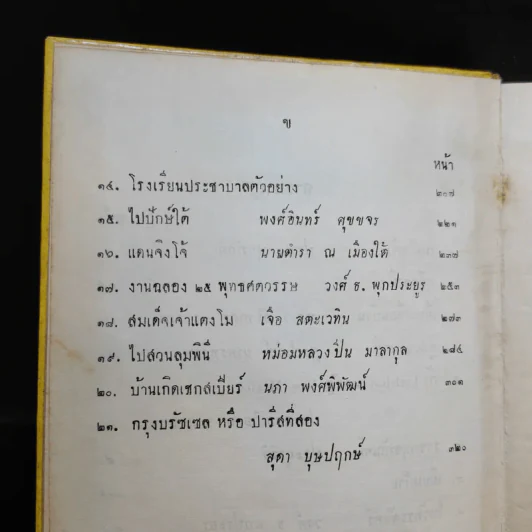 ข
หน้า
๑๔. โรงเรียนประชาบาลตัวอย่าง ๒๐๗
๑๕. ไปปักษ์ใต้ พงศ์อินทร์ ศุขขจร ๒๒๑
๑๖. แดนจิงโจ้ นายตำรา ณ เมืองใต้ ๒๓๗
๑๗. งานฉลอง ๒๕ พุทธศตวรรษ วงศ์ ธ. พุกประยูร ๒๕๓
๑๘. สมเด็จเจ้าแตงโม เจือ สตะเวทิน ๒๗๓
๑๙. ไปสวนลุมพินี หม่อมหลวงปิ่น มาลากุล ๒๘๔
๒๐. บ้านเกิดเชกส์เปียร์ นภา พงศ์พิพัฒน์ ๓๐๑
๒๑. กรุงบรัซเซล หรือ ปารีสที่สอง
สุดา บุษปฤกษ์ ๓๒๐